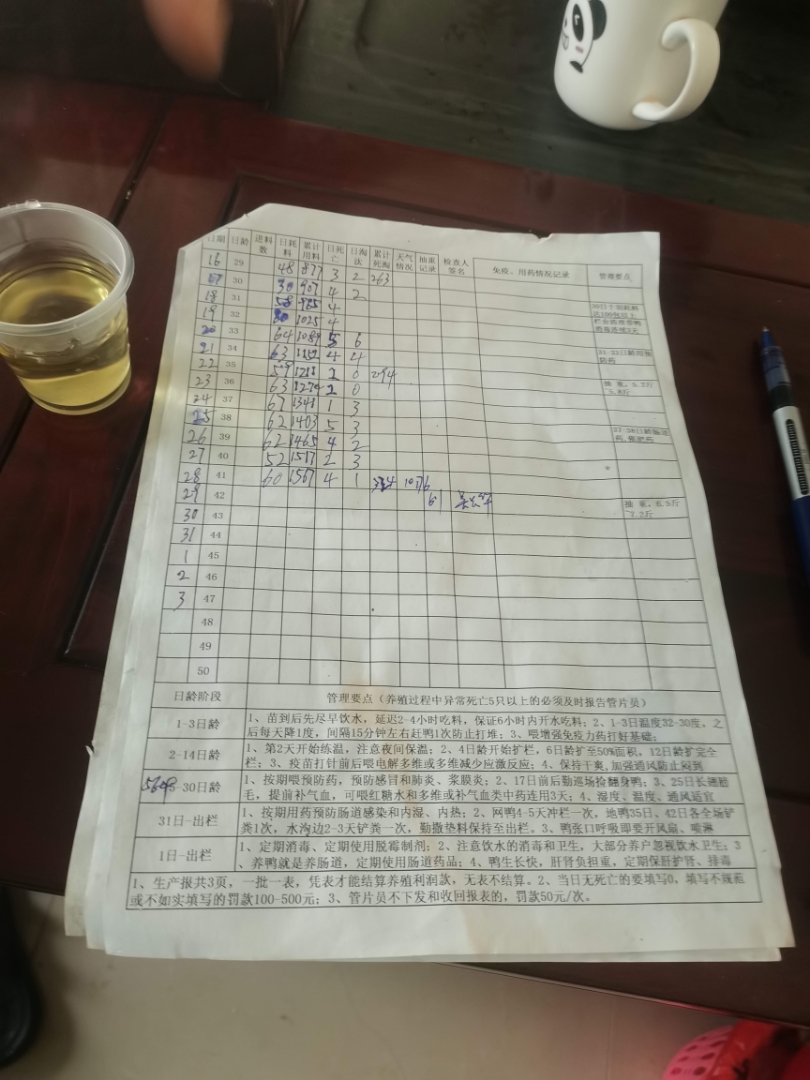 日期 日龄 进料数 日耗料 累计用料 日死亡 日淘汰 累计死淘 天气情况 抽重记录 检查人签名 免疫、用药情况记录 管理要点
16 29 48 877 3 2 263
17 30 30 907 4 2
18 31 58 4
19 32 1025 4
20 33 64 1089 5 6
21 34 63 1152 4 4
22 35 2 0
23 36 63 2 0
24 37 67 1341 1 3
25 38 62 1403 5 3
26 39 62 1465 4 2
27 40 52 1517 2 3
28 41 60 1567 4 1
29 42 抽重,6.5斤
30 43 7.2斤
31 44
1 45
2 46
3 47
48
49
50
日龄阶段 管理要点(养殖过程中异常死亡5只以上的必须及时报告管片员)
1-3日龄 1、苗到后先尽早饮水,延迟2-4小时吃料,保证6小时内开水吃料;2、1-3日温度32-30度,之
后每天降1度,间隔15分钟左右赶鸭1次防止打堆;3、喂增强免疫力药打好基础;
2-14日龄 1、第2天开始练温,注意夜间保温;2、4日龄开始扩栏,6日龄扩至50%面积,12日龄扩完全
栏;3、疫苗打针前后喂电解多维或多维减少应激反应;4、保持干爽,加强通风防止闷到
-30日龄 1、按期喂预防药,预防感冒和肺炎、浆膜炎;2、17日前后勤巡场捡翻身鸭;3、25日长翅
毛,提前补气血,可喂红糖水和多维或补气血类中药连用3天;4、湿度、温度、通风适宜
31日-出栏 1、按期用药预防肠道感染和内湿、内热;2、网鸭4-5天冲栏一次,地鸭35日、42日各全场铲
粪1次,水沟边2-3天铲粪一次,勤撒垫料保持至出栏。3、鸭张口呼吸即要开风扇、喷淋
1日-出栏 1、定期消毒、定期使用脱霉制剂;2、注意饮水的消毒和卫生,大部分养户忽视饮水卫生;3
、养鸭就是养肠道,定期使用肠道药品;4、鸭生长快,肝肾负担重,定期保肝护肾、排毒
1、生产报共3页,一批一表,凭表才能结算养殖利润款,无表不结算。2、当日无死亡的要填写0,填写不规范
或不如实填写的罚款100-500元;3、管片员不下发和收回报表的,罚款50元/次。